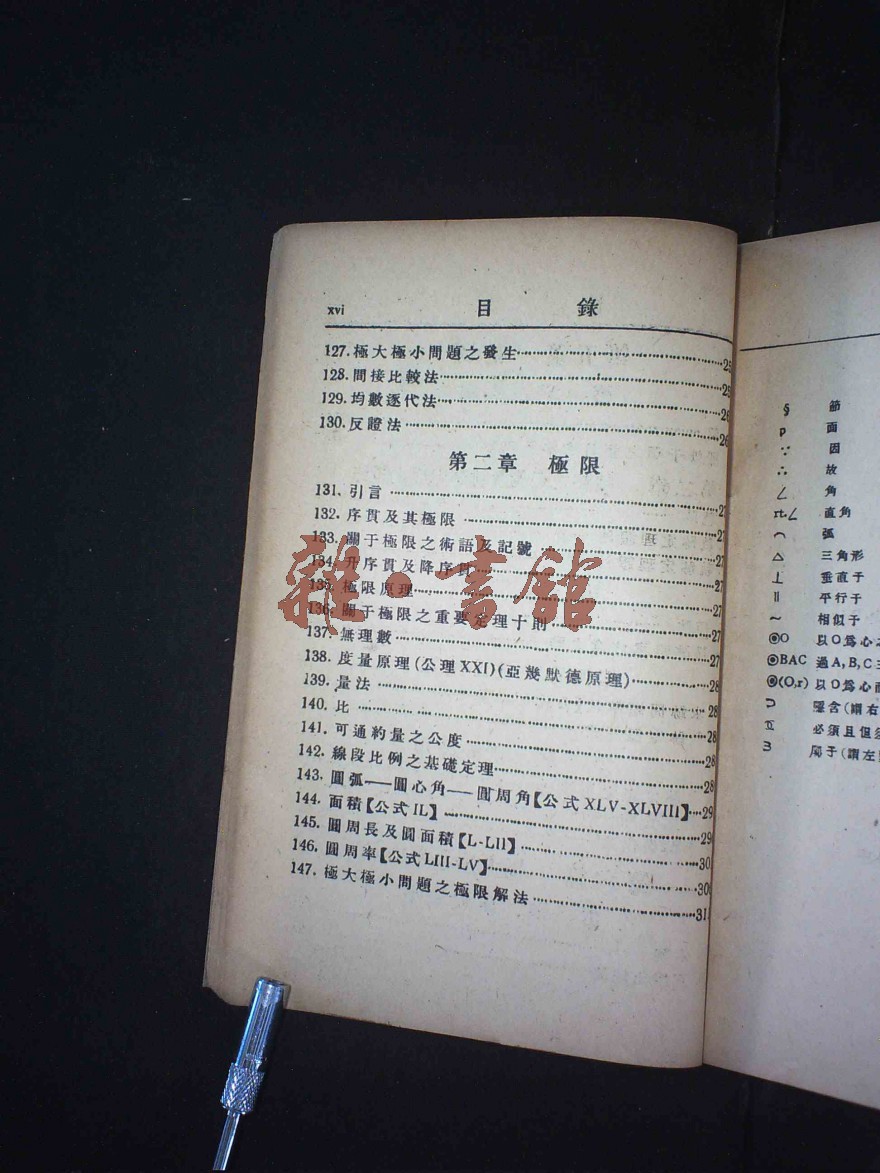 xvi 目錄
127.極大極小問題之發生……25
128.間接比較法……25
129.均數逐代法……26
130.反證法……26
第二章 極限
131.引言……27
132.序貫及其極限……27
133.關于極限之術語及記號……27
134.升序貫及降序貫……27
135.極限原理……27
136.關于極限之重要定理十則……27
137.無理數……27
138.度量原理(公理XXI)(亞幾默德原理)……28
139.量法……28
140.比……28
141.可通約量之公度……28
142.線段比例之基礎定理……28
143.圓弧——圓心角——圓周角【公式XLV-XLVIII】……29
144.面積【公式IL】……29
145.圓周長及圓面積【L-LII】……30
146.圓周率【公式LIII-LV】……30
147.極大極小問題之極限解法……31
雜·書館
§ 節
p 面
∵ 因
∴ 故
∠ 角
rt.∠ 直角
⌒ 弧
△ 三角形
⊥ 垂直于
∥ 平行于
~ 相似于
⊙O 以O為心之
⊙BAC 過A,B,C三
⊙(O,r) 以O為心而
⊃ 蘊含(謂右
必須且但須
屬于(謂左